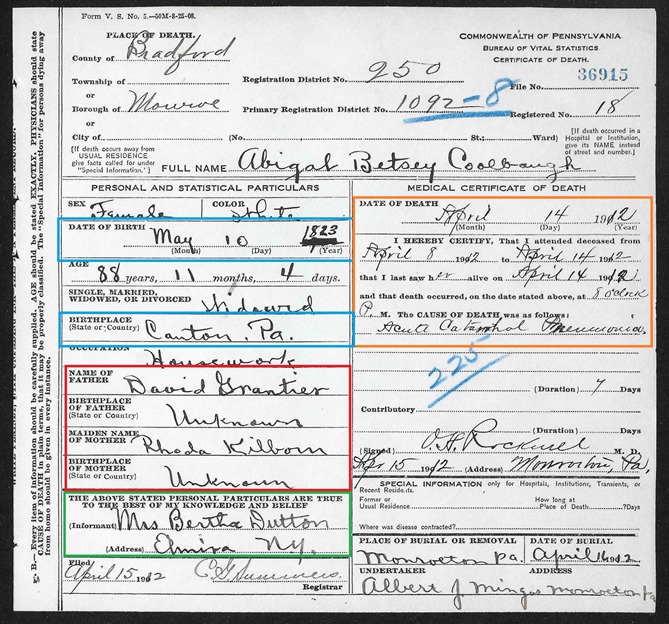 Form V. S. No. 5.—60M-8-25-08.
PLACE OF DEATH.
COMMONWEALTH OF PENNSYLVANIA
BUREAU OF VITAL STATISTICS
CERTIFICATE OF DEATH.
County of Bradford
Township of
or
Borough of Monroe
City of (No. St.; Ward)
Registration District No. 250
File No. 36915
Primary Registration District No. 1092-8
Registered No. 18
[If death occurs away from USUAL RESIDENCE give facts called for under "Special Information."]
[If death occurred in a Hospital or Institution, give its NAME instead of street and number.]
FULL NAME Abigal Betsey Coolbaugh
PERSONAL AND STATISTICAL PARTICULARS
SEX Female COLOR White
DATE OF BIRTH May 10 1823
(Month) (Day) (Year)
AGE 88 years, 11 months, 4 days.
SINGLE, MARRIED,
WIDOWED, OR DIVORCED Widowed
BIRTHPLACE
(State or Country) Canton, Pa.
OCCUPATION Housework
NAME OF
FATHER David Grantier
BIRTHPLACE
OF FATHER
(State or Country) Unknown
MAIDEN NAME
OF MOTHER Rhoda Kilborn
BIRTHPLACE
OF MOTHER
(State or Country) Unknown
THE ABOVE STATED PERSONAL PARTICULARS ARE TRUE
TO THE BEST OF MY KNOWLEDGE AND BELIEF
(Informant) Mrs Bertha Dutton
(Address) Elmira NY.
Filed April 15 1912 C G Summers.
Registrar
MEDICAL CERTIFICATE OF DEATH
DATE OF DEATH
April 14 1912
(Month) (Day) (Year)
I HEREBY CERTIFY, That I attended deceased from
April 8 1912 to April 14 1912
that I last saw her alive on April 14 1912
and that death occurred, on the date stated above, at 8 oclock
P. M. The CAUSE OF DEATH was as follows:
Acute Catarrhal Pneumonia.
225
(Duration) 7 Days
Contributory
(Duration) Days
(Signed) O. H. Rockwell M. D.
Apr 15 1912 (Address) Monroeton, Pa.
SPECIAL INFORMATION only for Hospitals, Institutions, Transients, or
Recent Residents.
Former or
Usual Residence
How long at
Place of Death? Days
Where was disease contracted?
PLACE OF BURIAL OR REMOVAL
Monroeton Pa.
DATE OF BURIAL
April 16 1912
UNDERTAKER ADDRESS
Albert J Mingos Monroeton Pa
B.—Every item of information should be carefully supplied. AGE should be stated EXACTLY. PHYSICIANS should state
CAUSE OF DEATH in plain terms, that it may be properly classified. The "Special Information" for persons dying away
from home should be given in every instance.